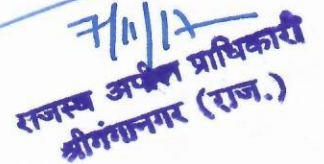 7/11/17
राजस्व अपील प्राधिकारी
श्रीगंगानगर (राज.)